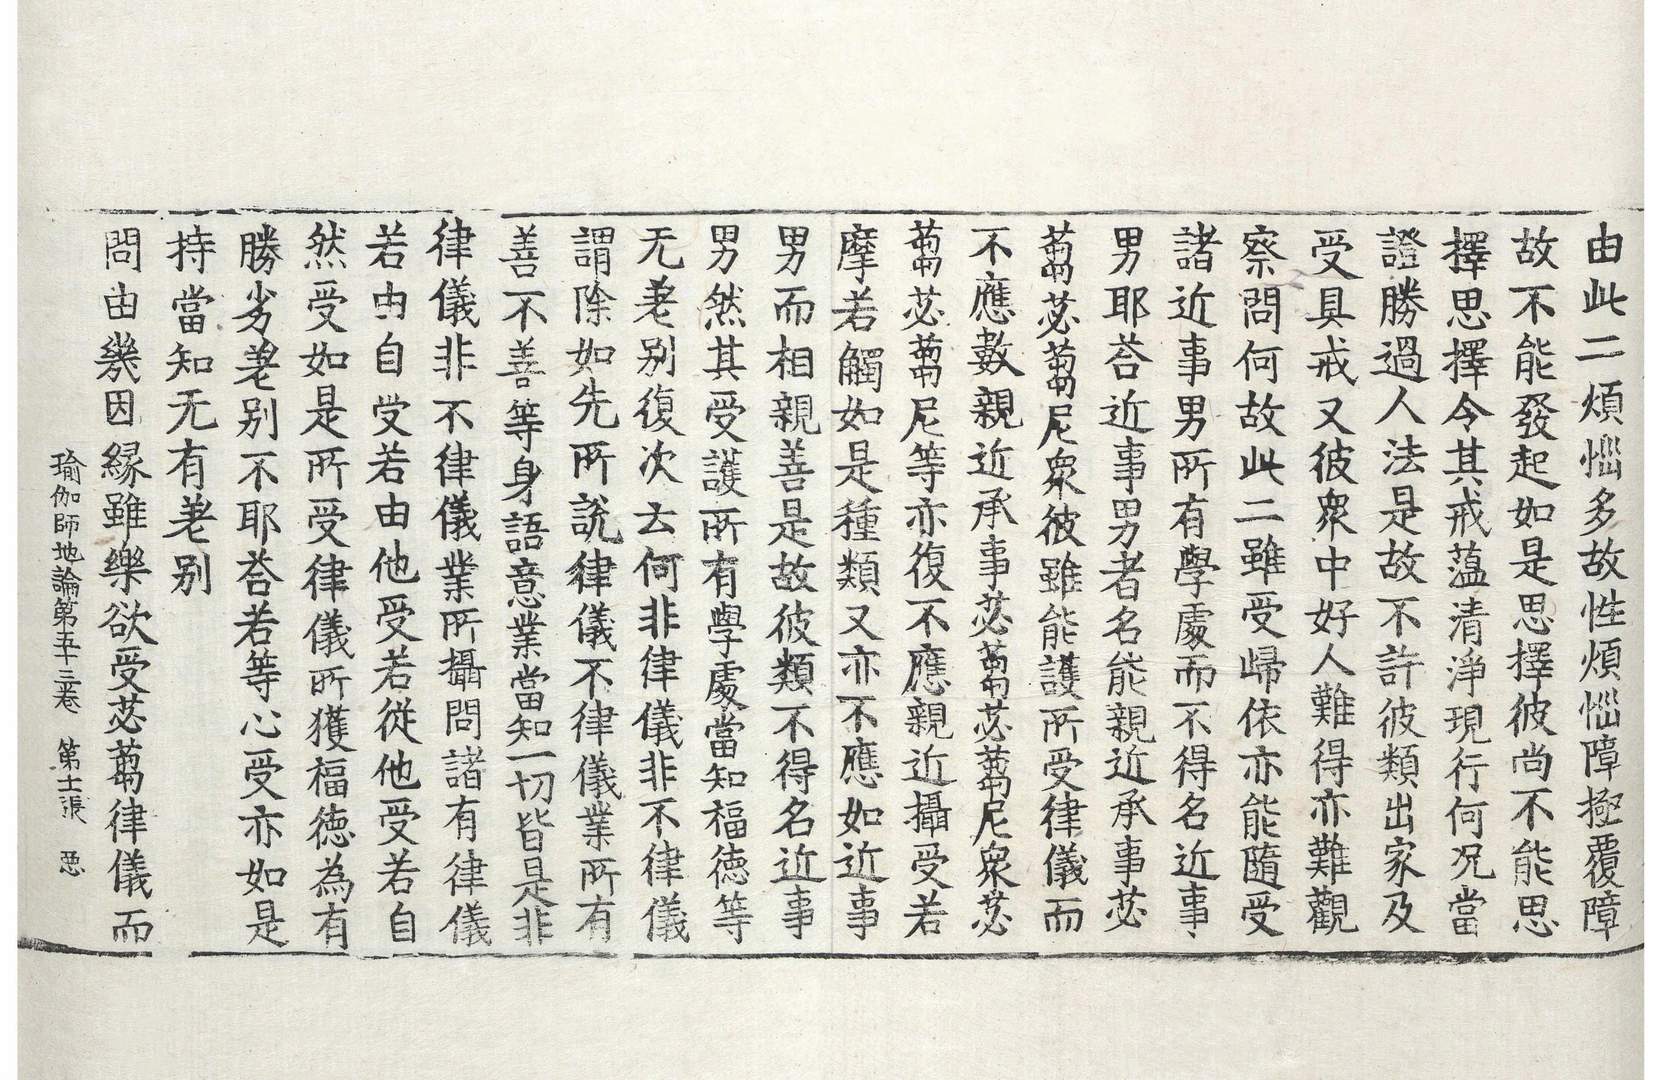 由此二煩惱多故性煩惱障極覆障
故不能發起如是思擇彼尚不能思
擇思擇令其戒蘊清淨現行何況當
證勝過人法是故不許彼類出家及
受具戒又彼衆中好人難得亦難觀
察問何故此二雖受歸依亦能隨受
諸近事男所有學處而不得名近事
男耶荅近事男者名能親近承事苾
蒭苾蒭尼衆彼雖能護所受律儀而
不應數親近承事苾蒭苾蒭尼衆苾
蒭苾蒭尼等亦復不應親近攝受若
摩若觸如是種類又亦不應如近事
男而相親善是故彼類不得名近事
男然其受護所有學處當知福德等
无差别復次云何非律儀非不律儀
謂除如先所說律儀不律儀業所有
善不善等身語意業當知一切皆是非
律儀非不律儀業所攝問諸有律儀
若由自受若由他受若從他受若自
然受如是所受律儀所獲福德為有
勝劣差别不耶荅若等心受亦如是
持當知无有差别
問由幾因緣雖樂欲受苾蒭律儀而
瑜伽師地論第五十三卷 第十二張 惡